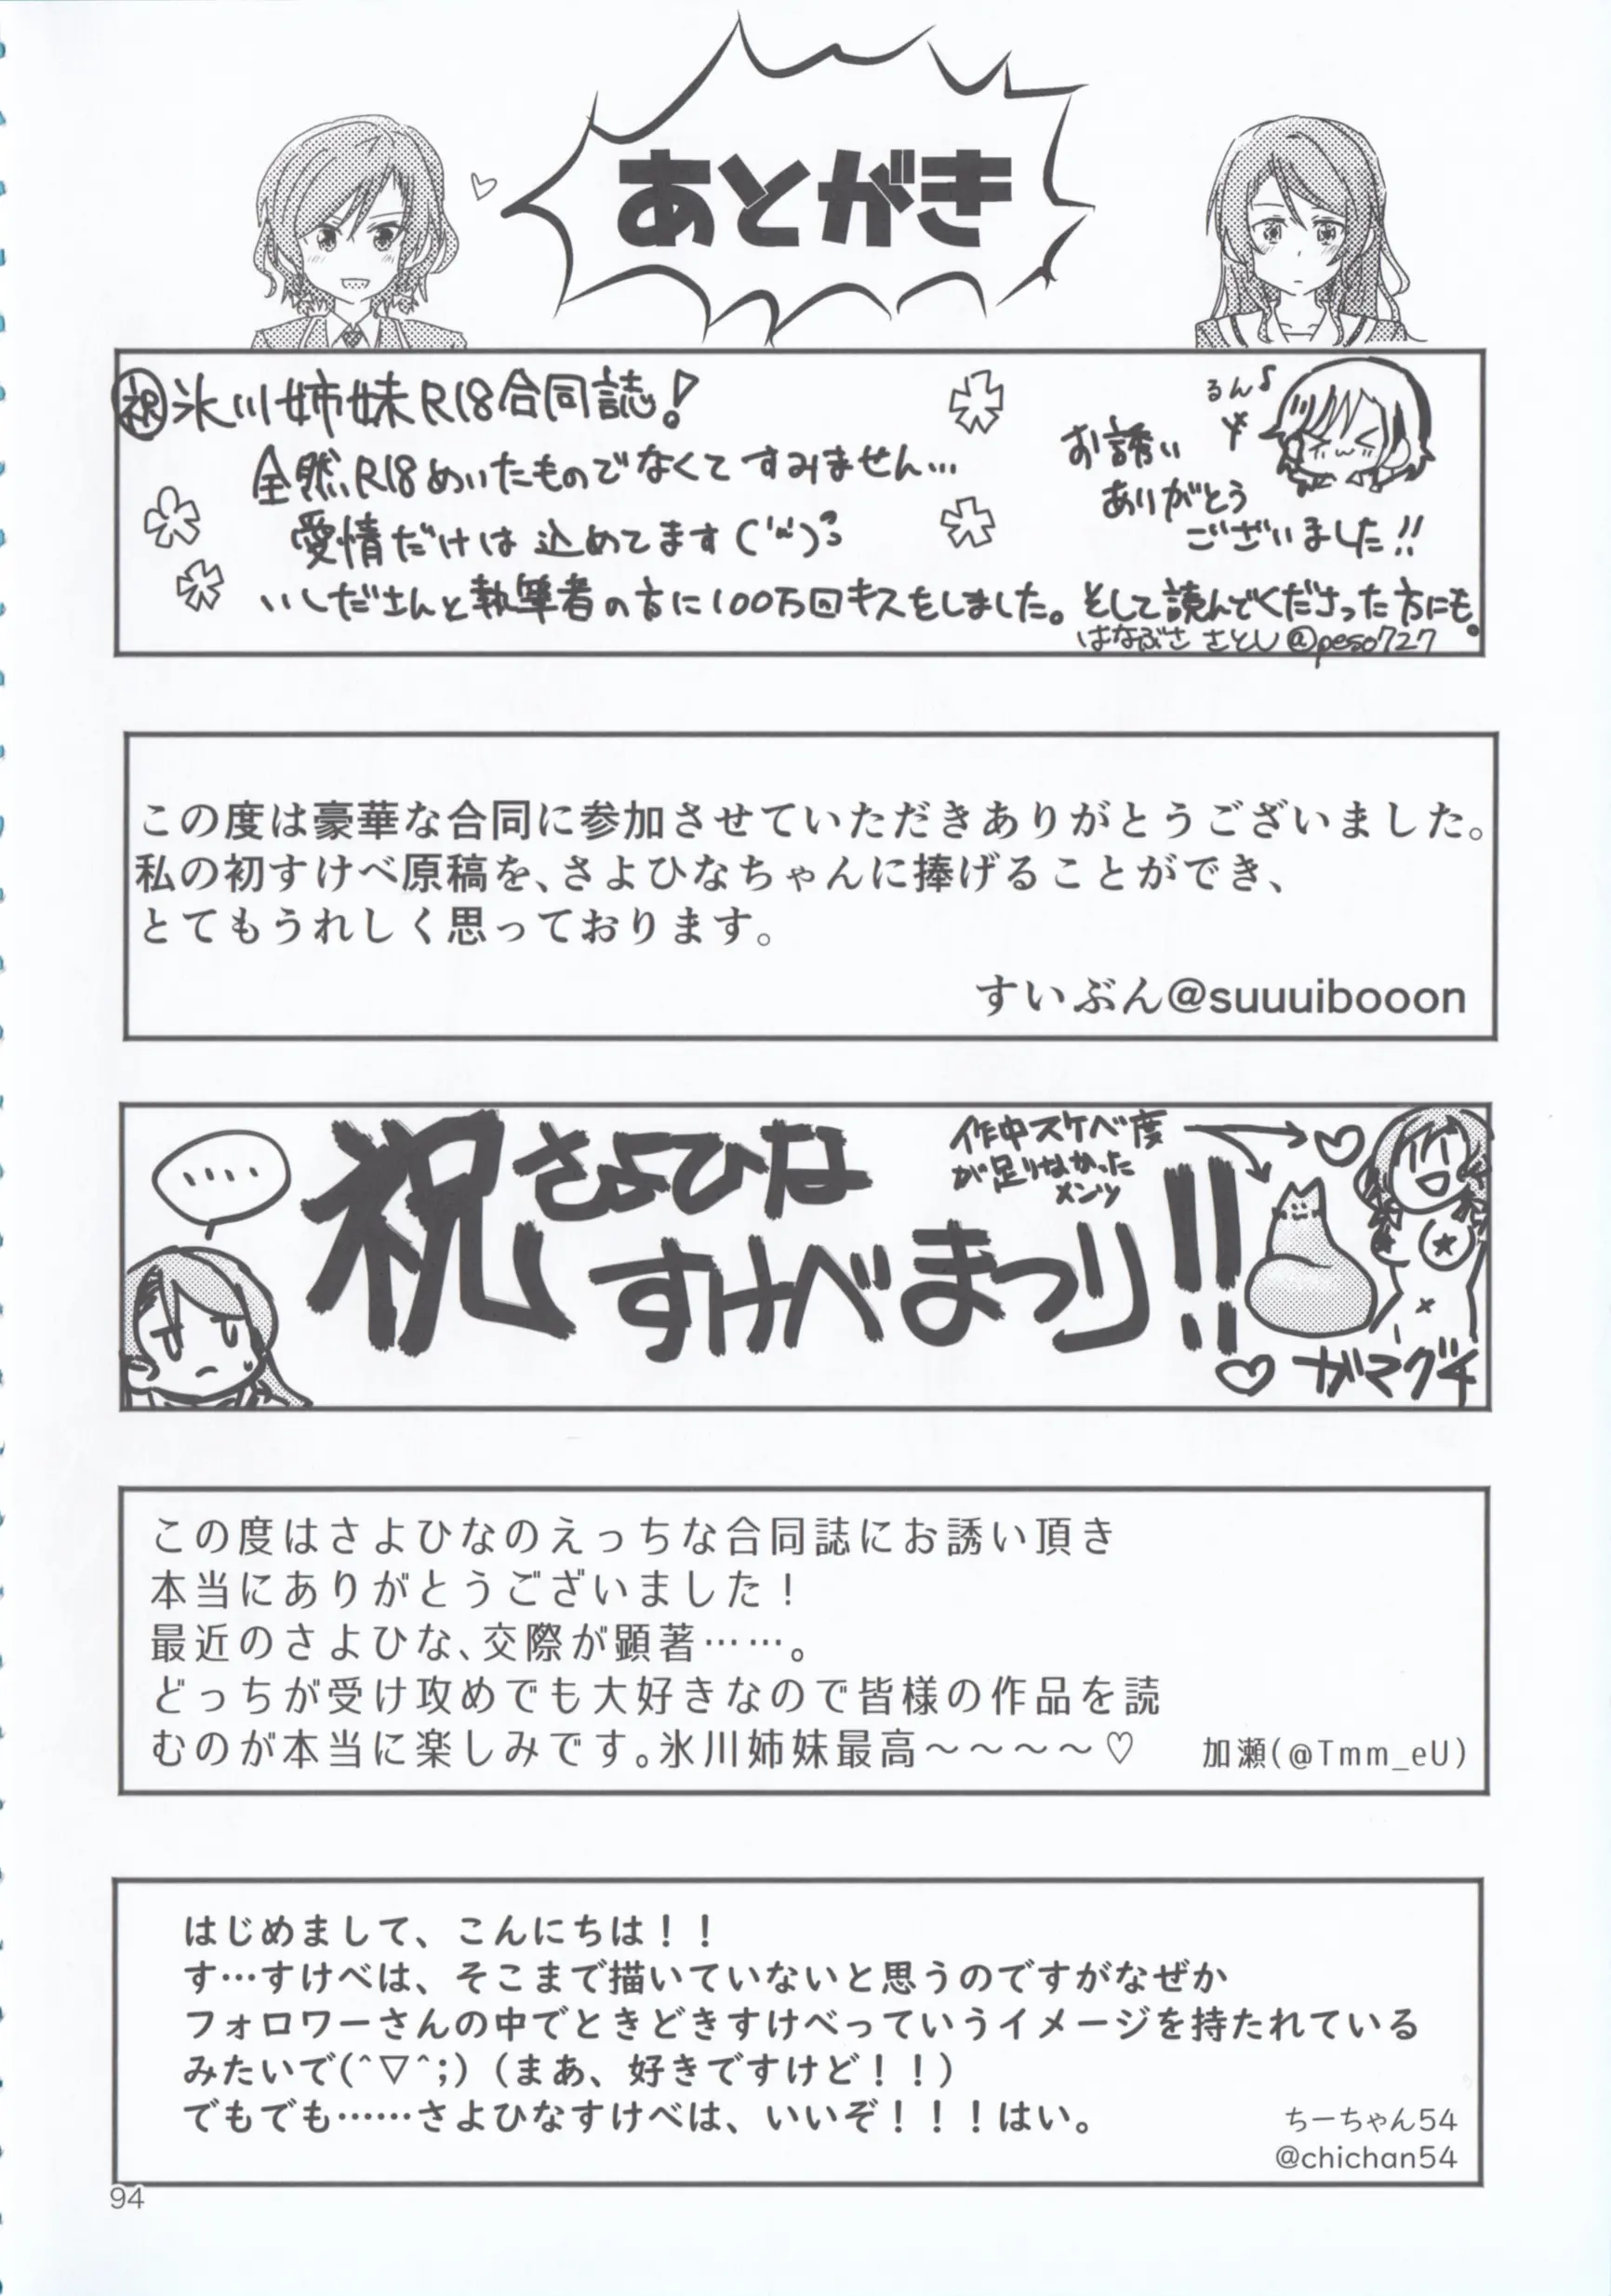 あとがき
祝 氷川姉妹R18合同誌!
全然R18めいたものでなくてすみません…
愛情だけは込めてます
いしださんと執筆者の方に100万回キスをしました。そして読んでくださった方にも。
るん♪
お誘い
ありがとう
ございました!!
はなぶさ さとし @peso727
この度は豪華な合同に参加させていただきありがとうございました。
私の初すけべ原稿を、さよひなちゃんに捧げることができ、
とてもうれしく思っております。
すいぶん@suuuibooon
....
祝 さよひな
すけべまつり!!
作中スケベ度
が足りなかった
メンツ
♡ガマグチ
この度はさよひなのえっちな合同誌にお誘い頂き
本当にありがとうございました!
最近のさよひな、交際が顕著……。
どっちが受け攻めでも大好きなので皆様の作品を読
むのが本当に楽しみです。氷川姉妹最高〜〜〜〜♡
加瀬(@Tmm_eU)
はじめまして、こんにちは!!
す…すけべは、そこまで描いていないと思うのですがなぜか
フォロワーさんの中でときどきすけべっていうイメージを持たれている
みたいで(^▽^;)(まあ、好きですけど!!)
でもでも……さよひなすけべは、いいぞ!!!はい。
ちーちゃん54
@chichan54
94